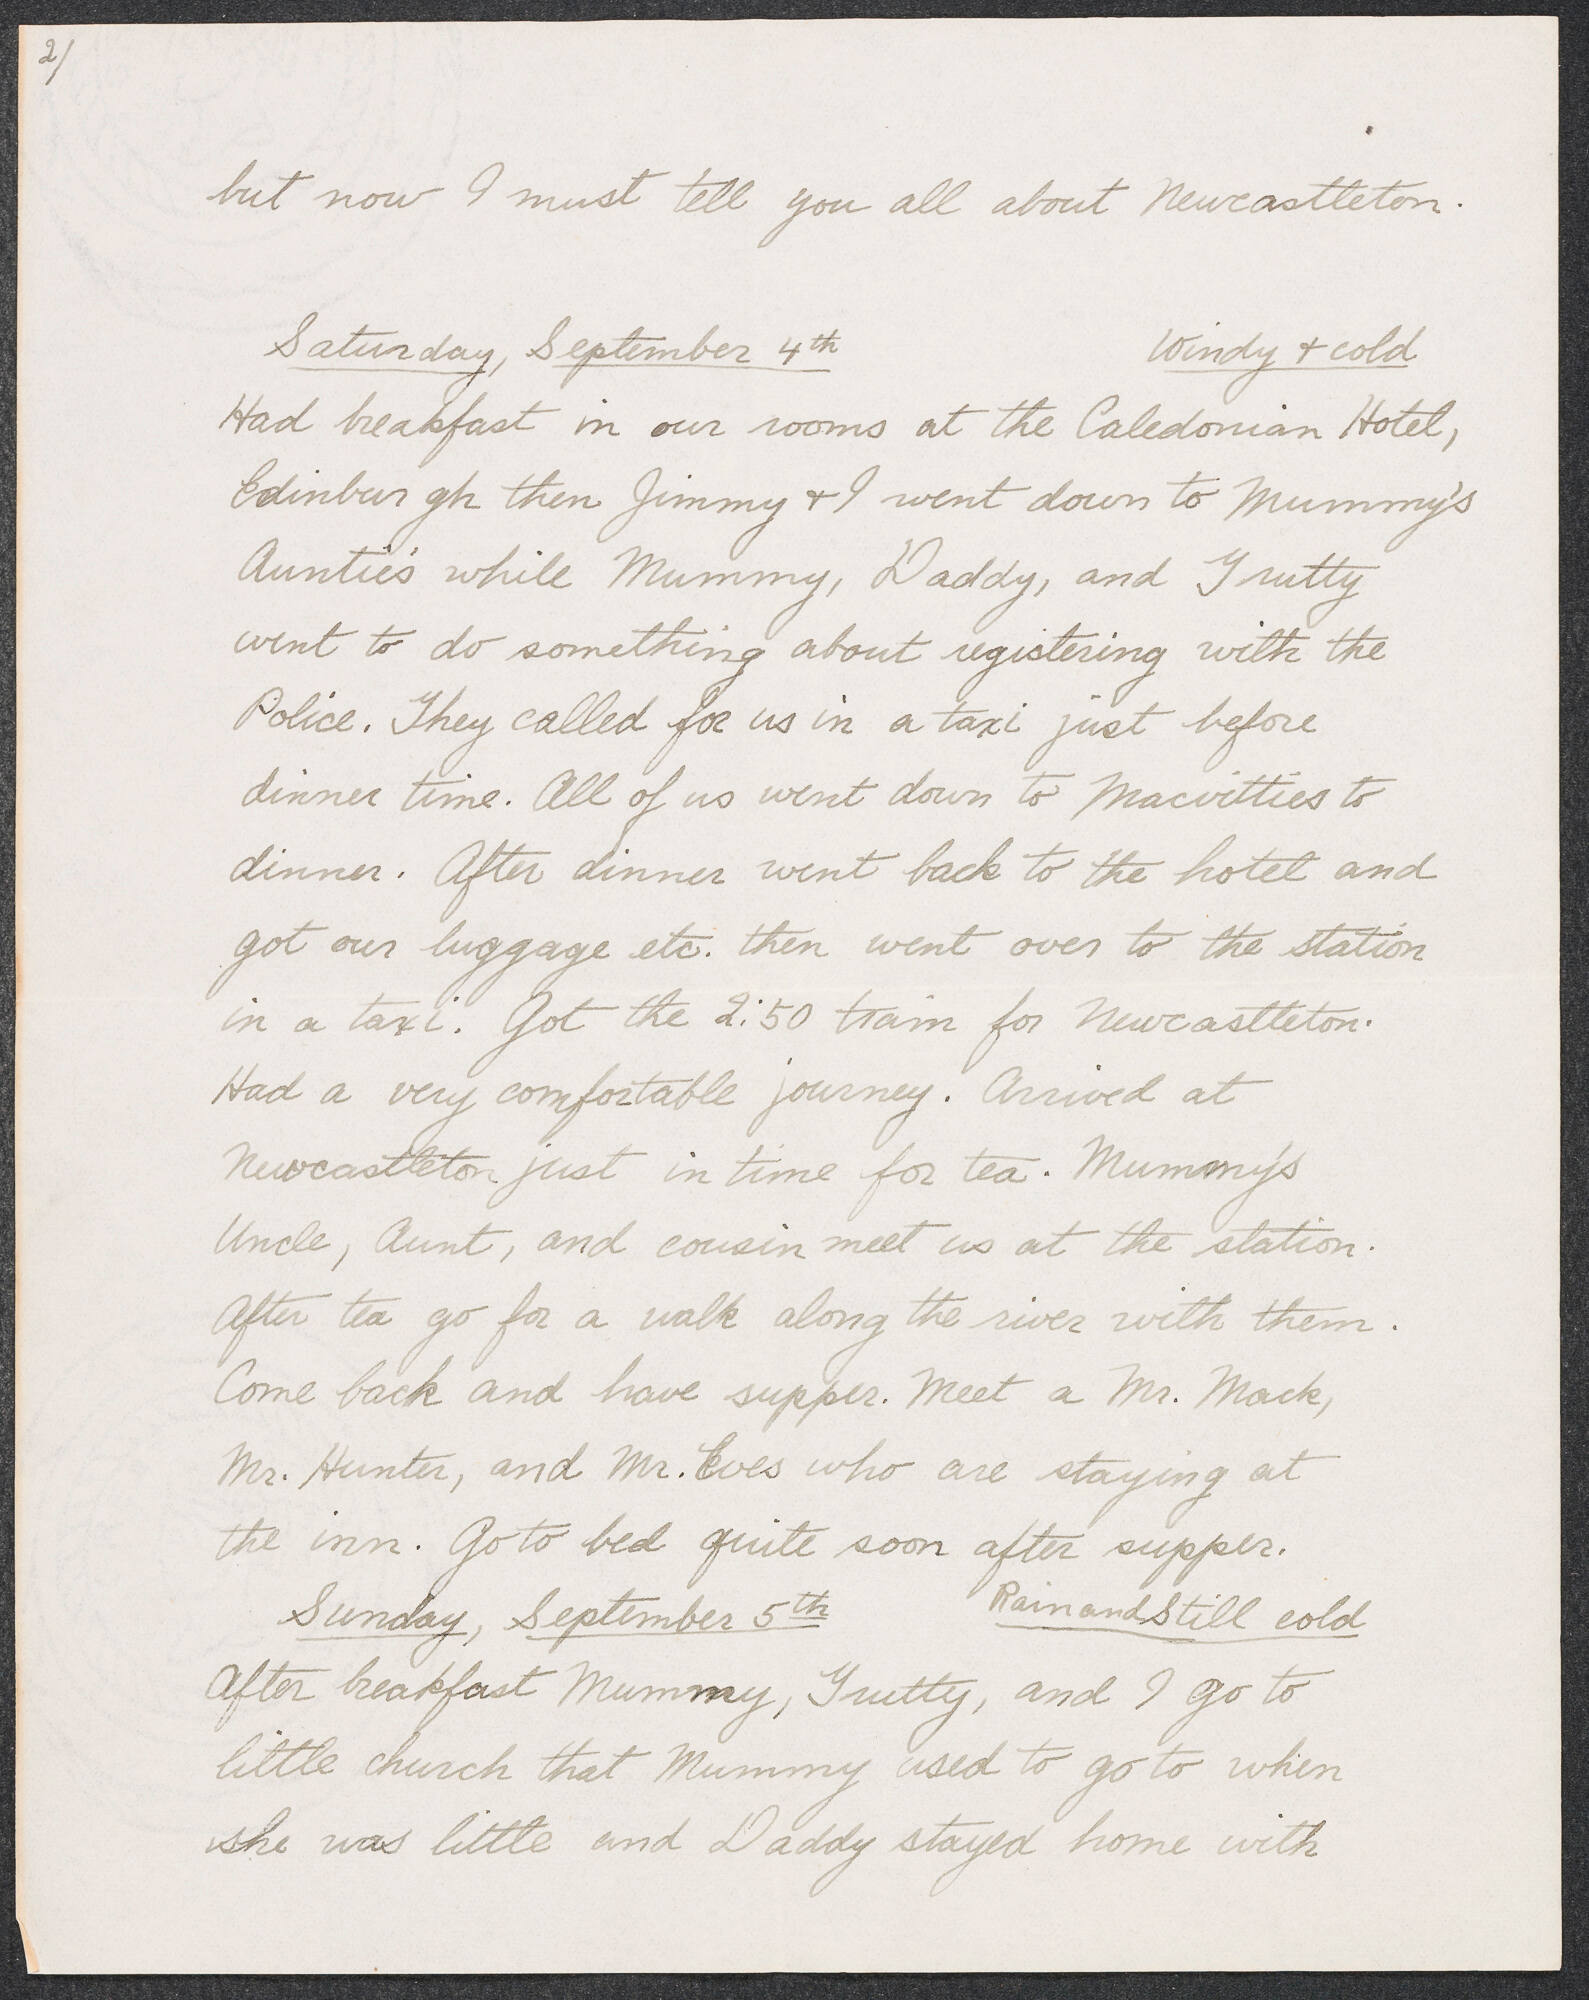 2/
but now I must tell you all about Newcastleton.
Saturday, September 4th Windy + cold
Had breakfast in our rooms at the Caledonian Hotel,
Edinburgh then Jimmy + I went down to Mummy's
Auntie's while Mummy, Daddy, and Trutty
went to do something about registering with the
Police. They called for us in a taxi just before
dinner time. All of us went down to Macvitties to
dinner. After dinner went back to the hotel and
got our luggage etc. then went over to the station
in a taxi. Got the 2:50 train for Newcastleton.
Had a very comfortable journey. Arrived at
Newcastleton just in time for tea. Mummy's
Uncle, Aunt, and cousin meet us at the station.
After tea go for a walk along the river with them.
Come back and have supper. Meet a Mr. Mack,
Mr. Hunter, and Mr. Eves who are staying at
the inn. Go to bed quite soon after supper.
Sunday, September 5th Rain and Still cold
After breakfast Mummy, Trutty, and I go to
little church that Mummy used to go to when
she was little and Daddy stayed home with